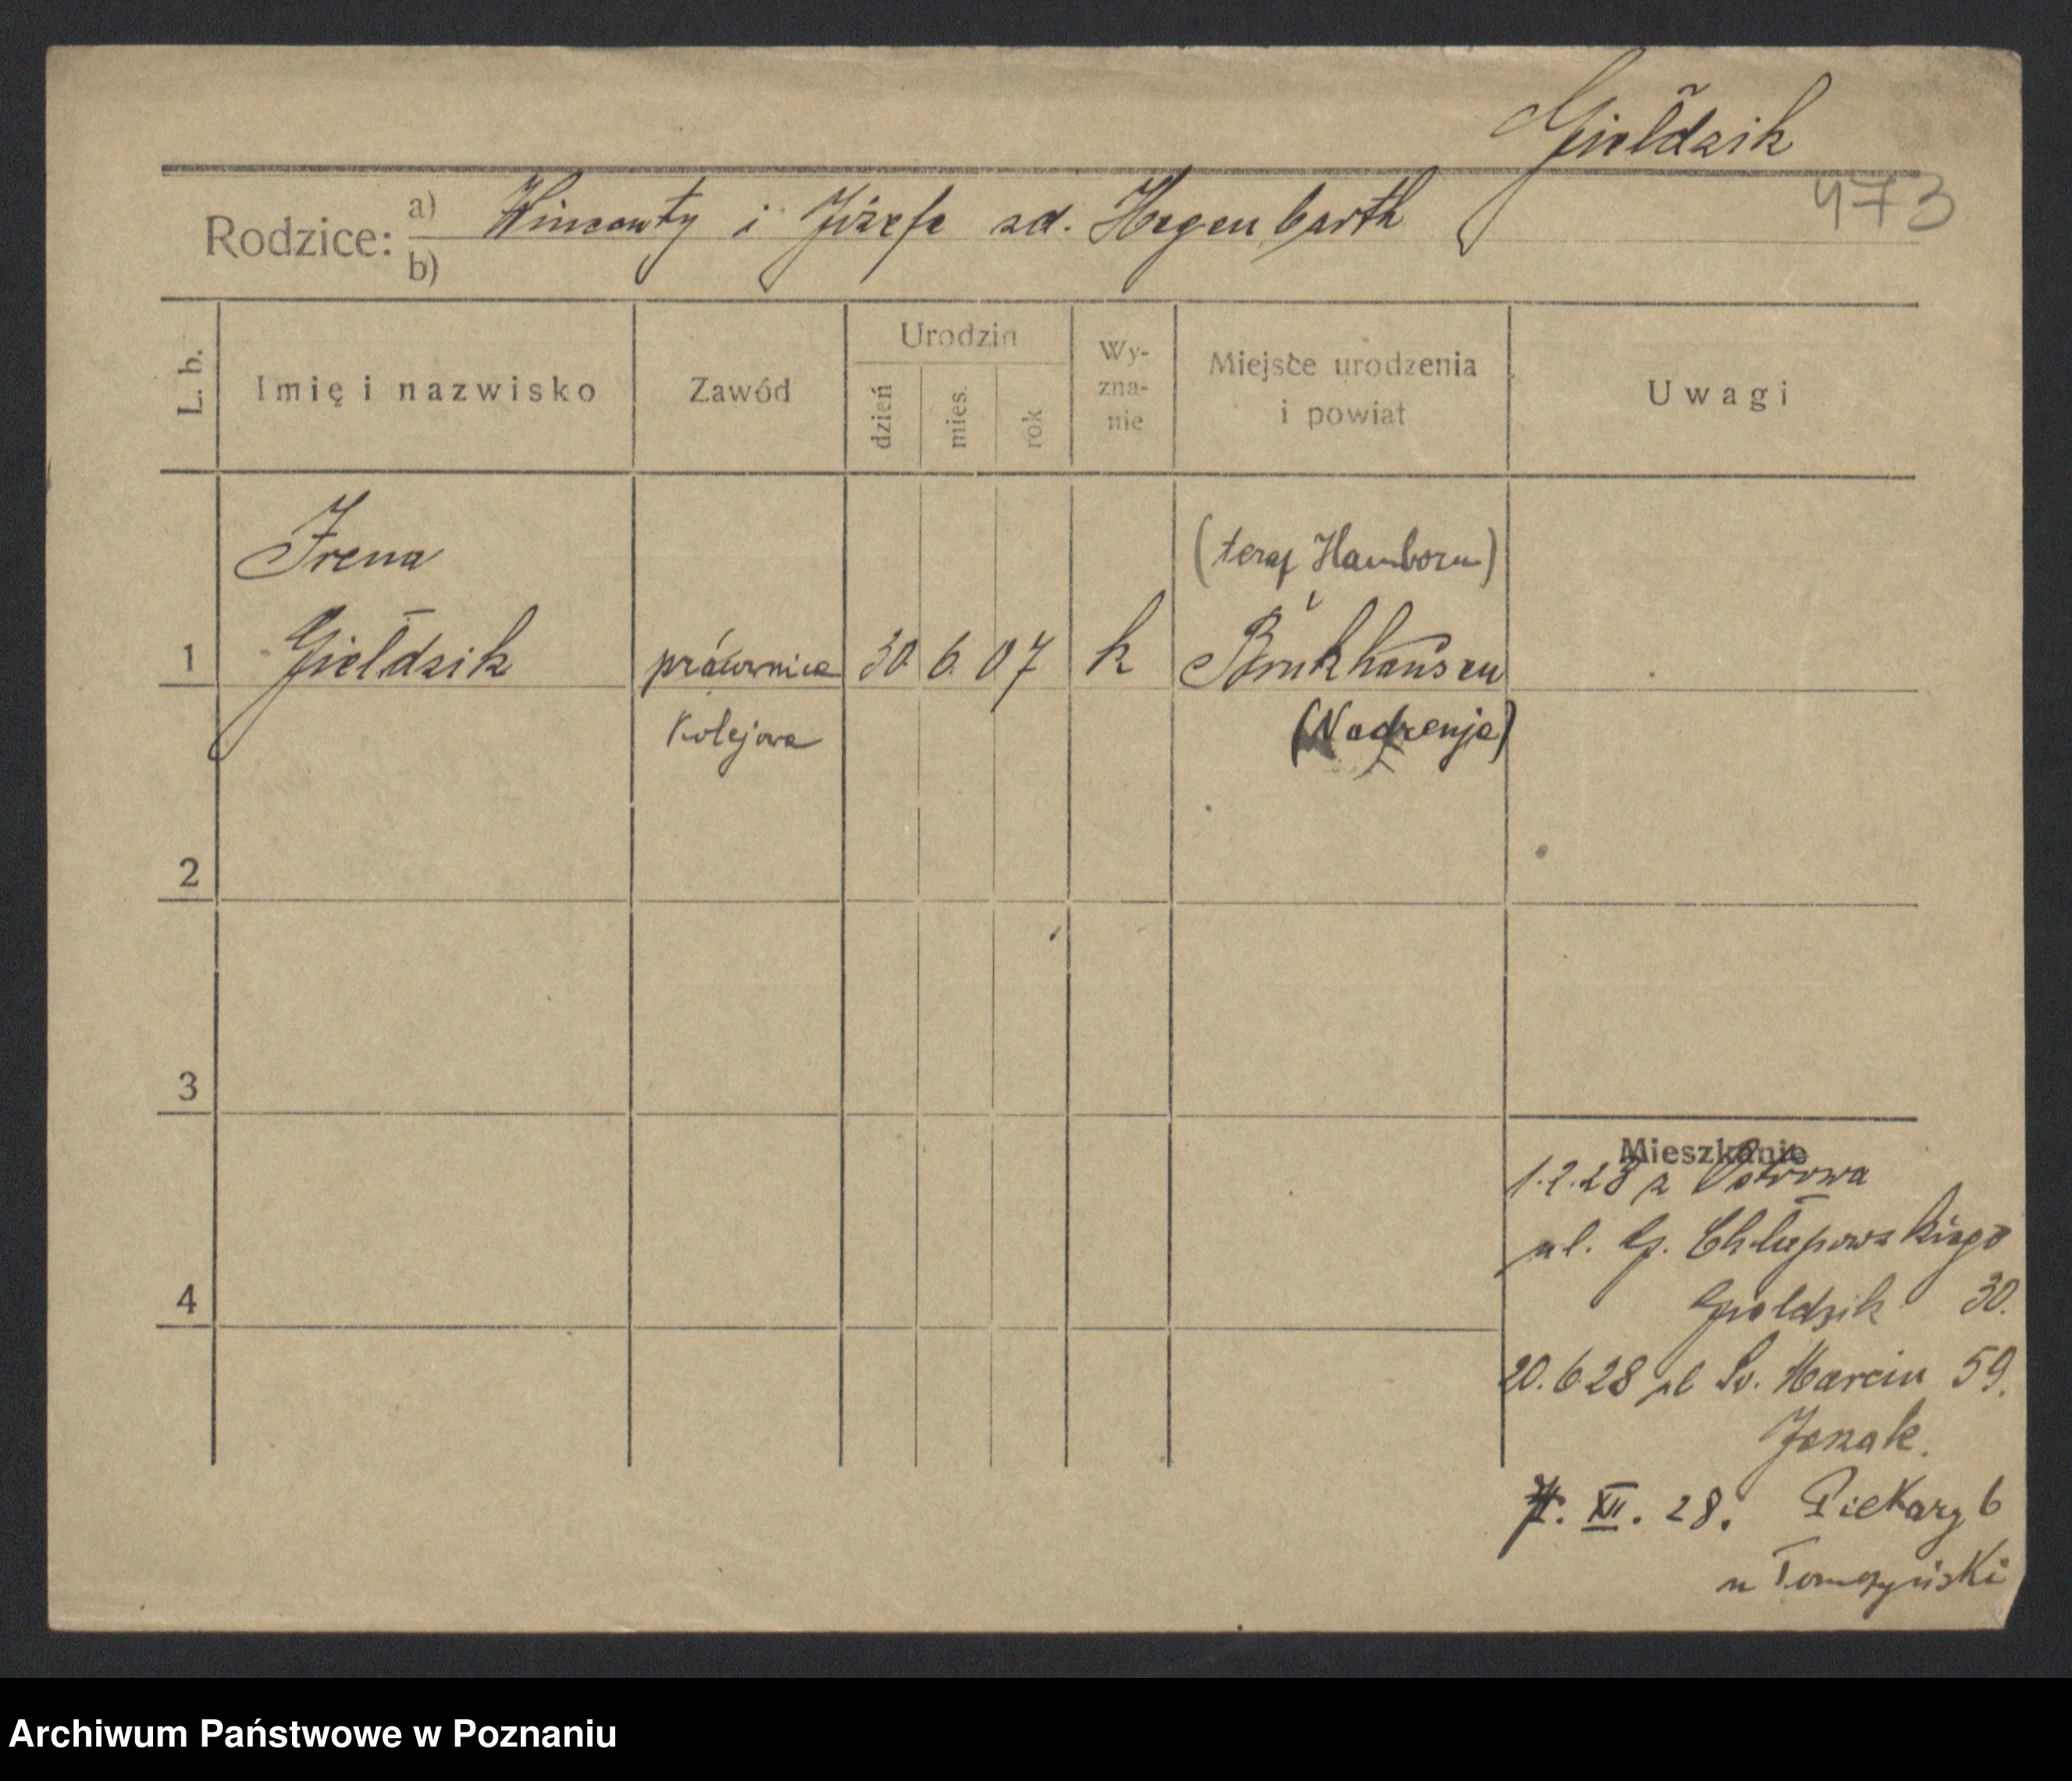 Giełdzik
473
Rodzice: a) Wincenty i Józefa zd. Hegenbarth
b)
L. b.
Imię i nazwisko
Zawód
Urodzin
dzień
mies.
rok
Wy-
zna-
nie
Miejsce urodzenia
i powiat
Uwagi
Irena
(teraz Hamborn)
1 Giełdzik
30. 6. 07
k
Brukhausen
kolejowa
(Nadrenja)
2
3
4
Mieszkanie
1.2.28 z Ostrowa
ul. G. Chłapowskiego
Giełdzik 30.
20.6.28 ul Św. Marcin 59.
XII. 28. Piekary 6
u Tomczyński
Archiwum Państwowe w Poznaniu